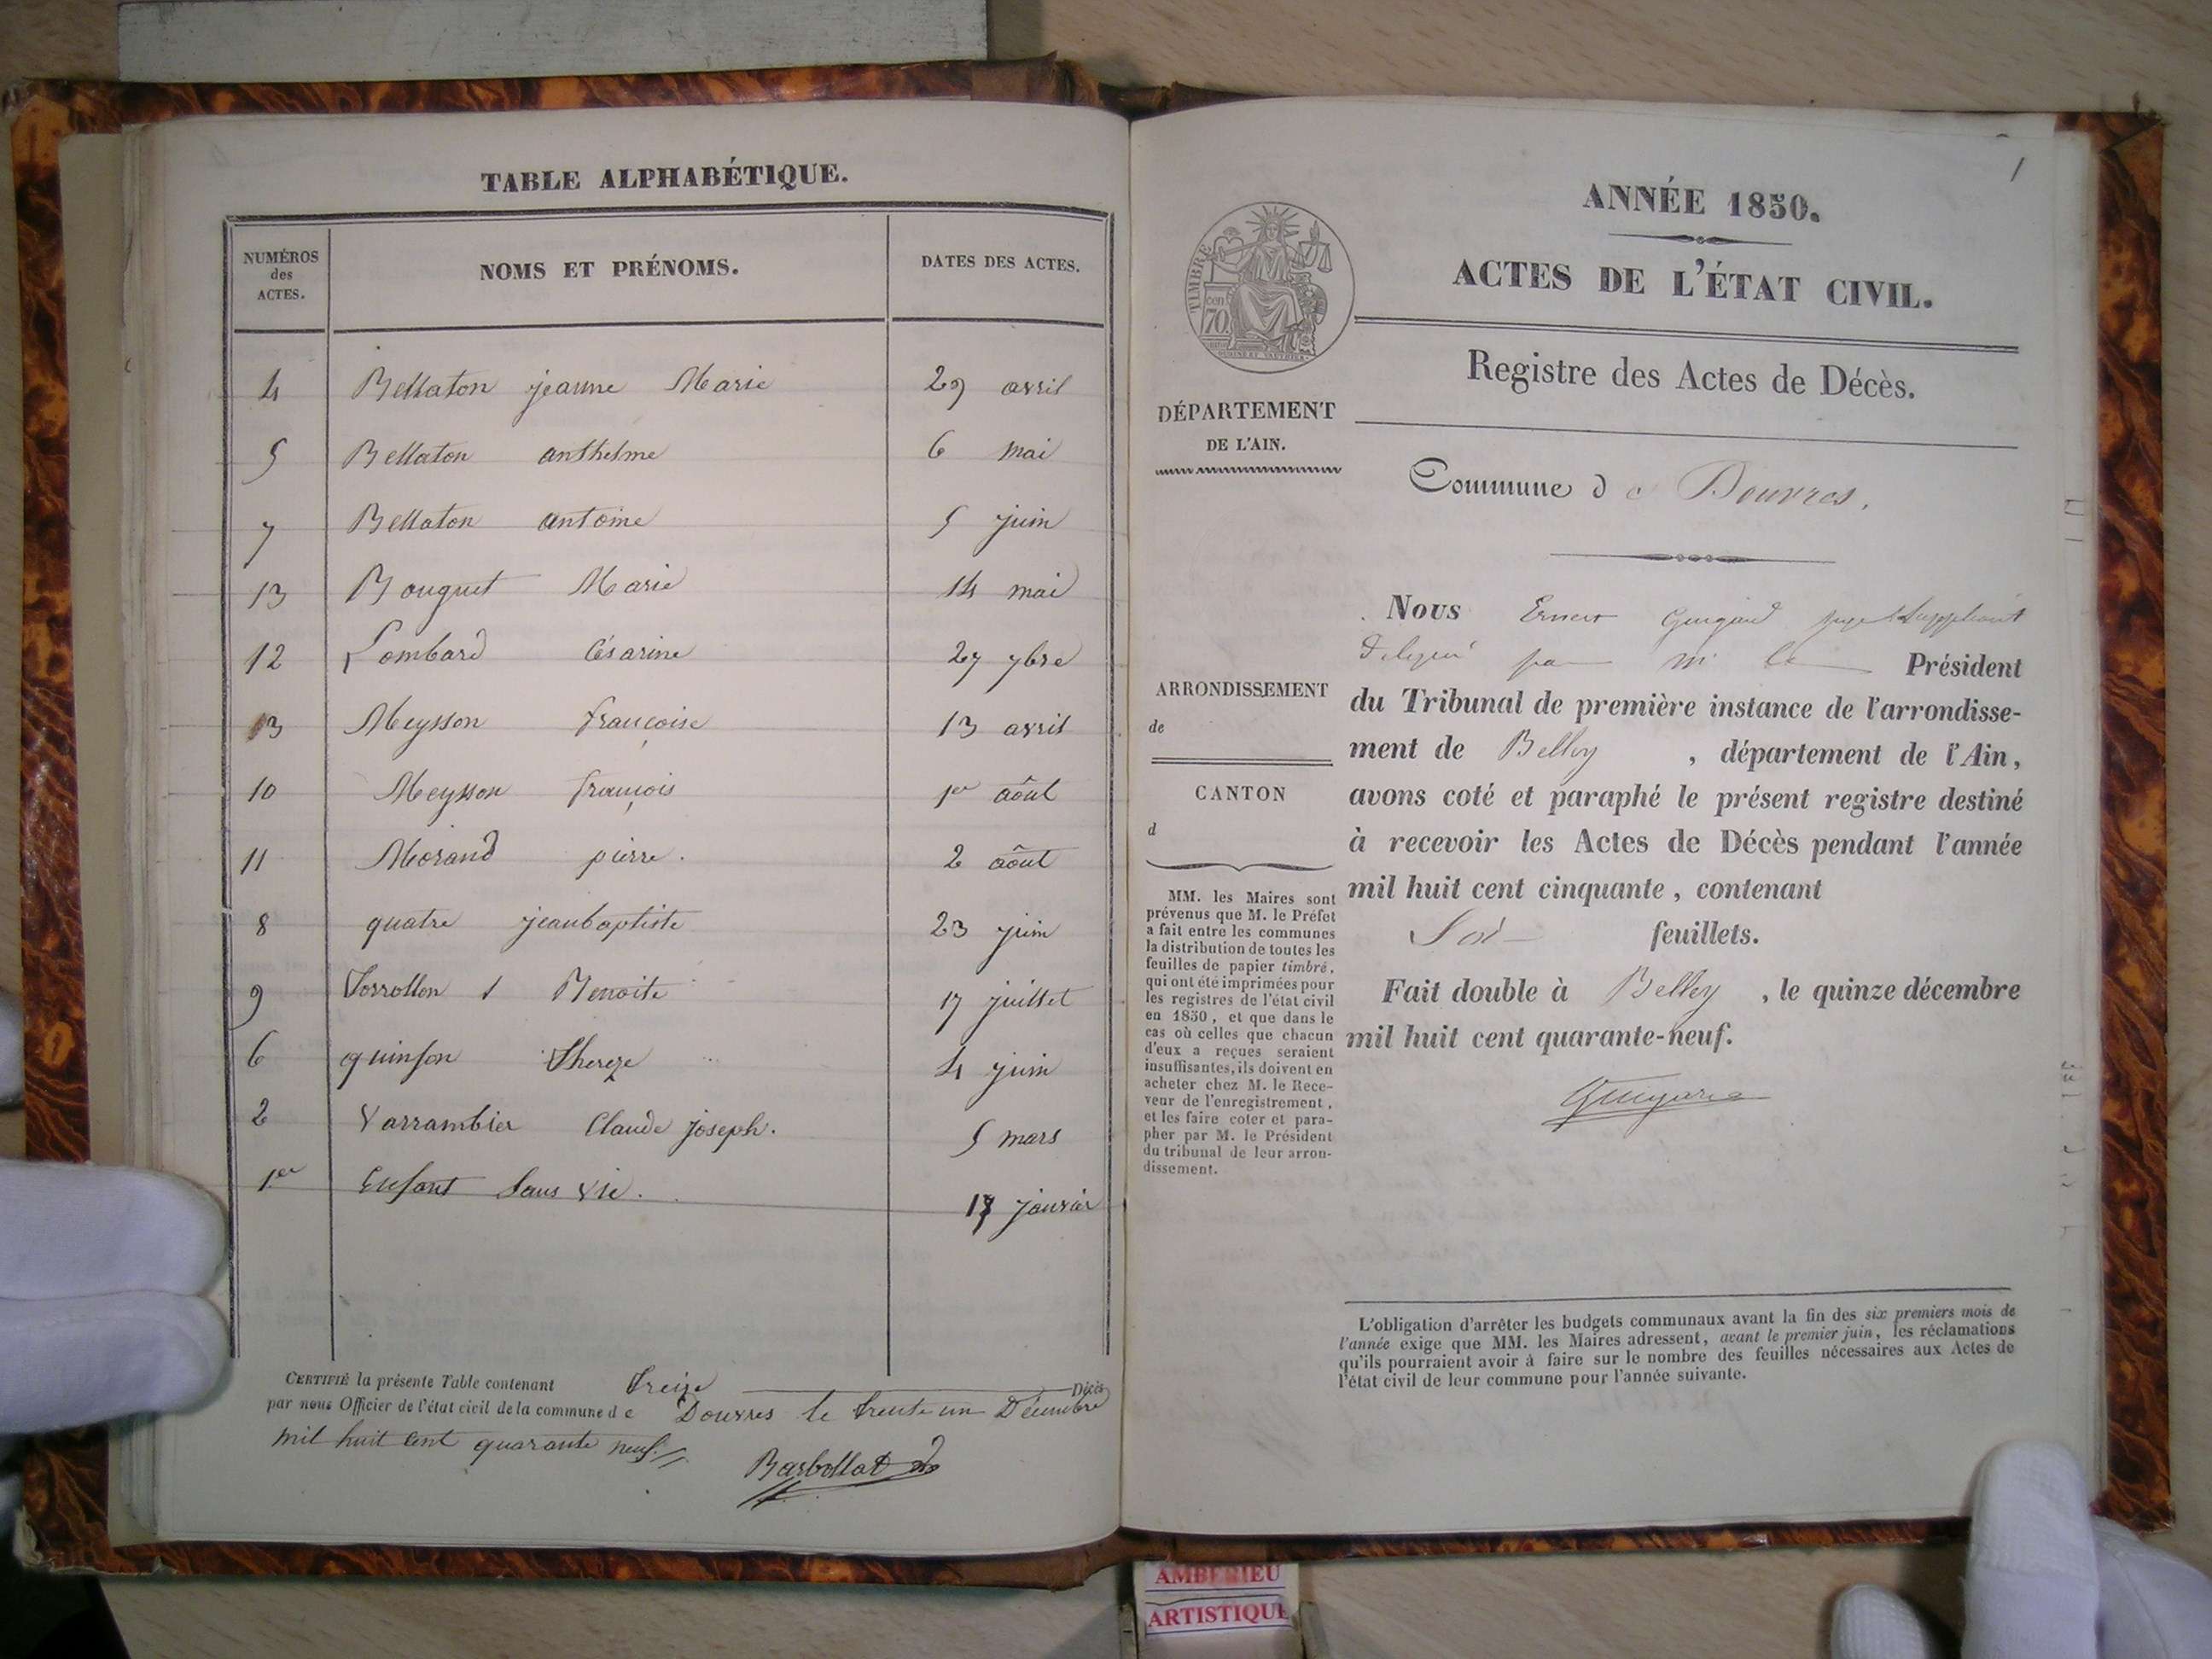 TABLE ALPHABÉTIQUE.
NUMÉROS des ACTES.
NOMS ET PRÉNOMS.
DATES DES ACTES.
4 Bellaton jeanne Marie 29 avril
5 Bellaton anthelme 6 mai
7 Bellaton antoine 5 juin
13 Bouquet Marie 14 mai
12 Lombard Césarine 27 7bre
13 Meysson françoise 13 avril
10 Meysson françois 1er août
11 Morand pierre. 2 août
8 quatre jeanbaptiste 23 juin
9 Benoite 17 juillet
6 quinson Thereze 4 juin
2 Varrambier Claude joseph. 5 mars
1er Enfant Sans vie. 17 janvier
CERTIFIÉ la présente Table contenant treize Décès
par nous Officier de l'état civil de la commune de Douvres le trente un Décembre
mil huit cent quarante neuf.
Barbollat
1
ANNÉE 1850.
ACTES DE L'ÉTAT CIVIL.
TIMBRE
70 cen
Registre des Actes de Décès.
DÉPARTEMENT
DE L'AIN.
Commune de Douvres.
Nous Ernest Guigard juge Suppléant
délégué par Mr le Président
ARRONDISSEMENT
de
du Tribunal de première instance de l'arrondisse-
ment de Belley, département de l'Ain,
CANTON
d
avons coté et paraphé le présent registre destiné
à recevoir les Actes de Décès pendant l'année
mil huit cent cinquante, contenant
Six feuillets.
Fait double à Belley, le quinze décembre
mil huit cent quarante-neuf.
Guigard
MM. les Maires sont
prévenus que M. le Préfet
a fait entre les communes
la distribution de toutes les
feuilles de papier timbré,
qui ont été imprimées pour
les registres de l'état civil
en 1850, et que dans le
cas où celles que chacun
d'eux a reçues seraient
insuffisantes, ils doivent en
acheter chez M. le Rece-
veur de l'enregistrement,
et les faire coter et para-
pher par M. le Président
du tribunal de leur arron-
dissement.
L'obligation d'arrêter les budgets communaux avant la fin des six premiers mois de
l'année exige que MM. les Maires adressent, avant le premier juin, les réclamations
qu'ils pourraient avoir à faire sur le nombre des feuilles nécessaires aux Actes de
l'état civil de leur commune pour l'année suivante.
AMBERIEU
ARTISTIQUE